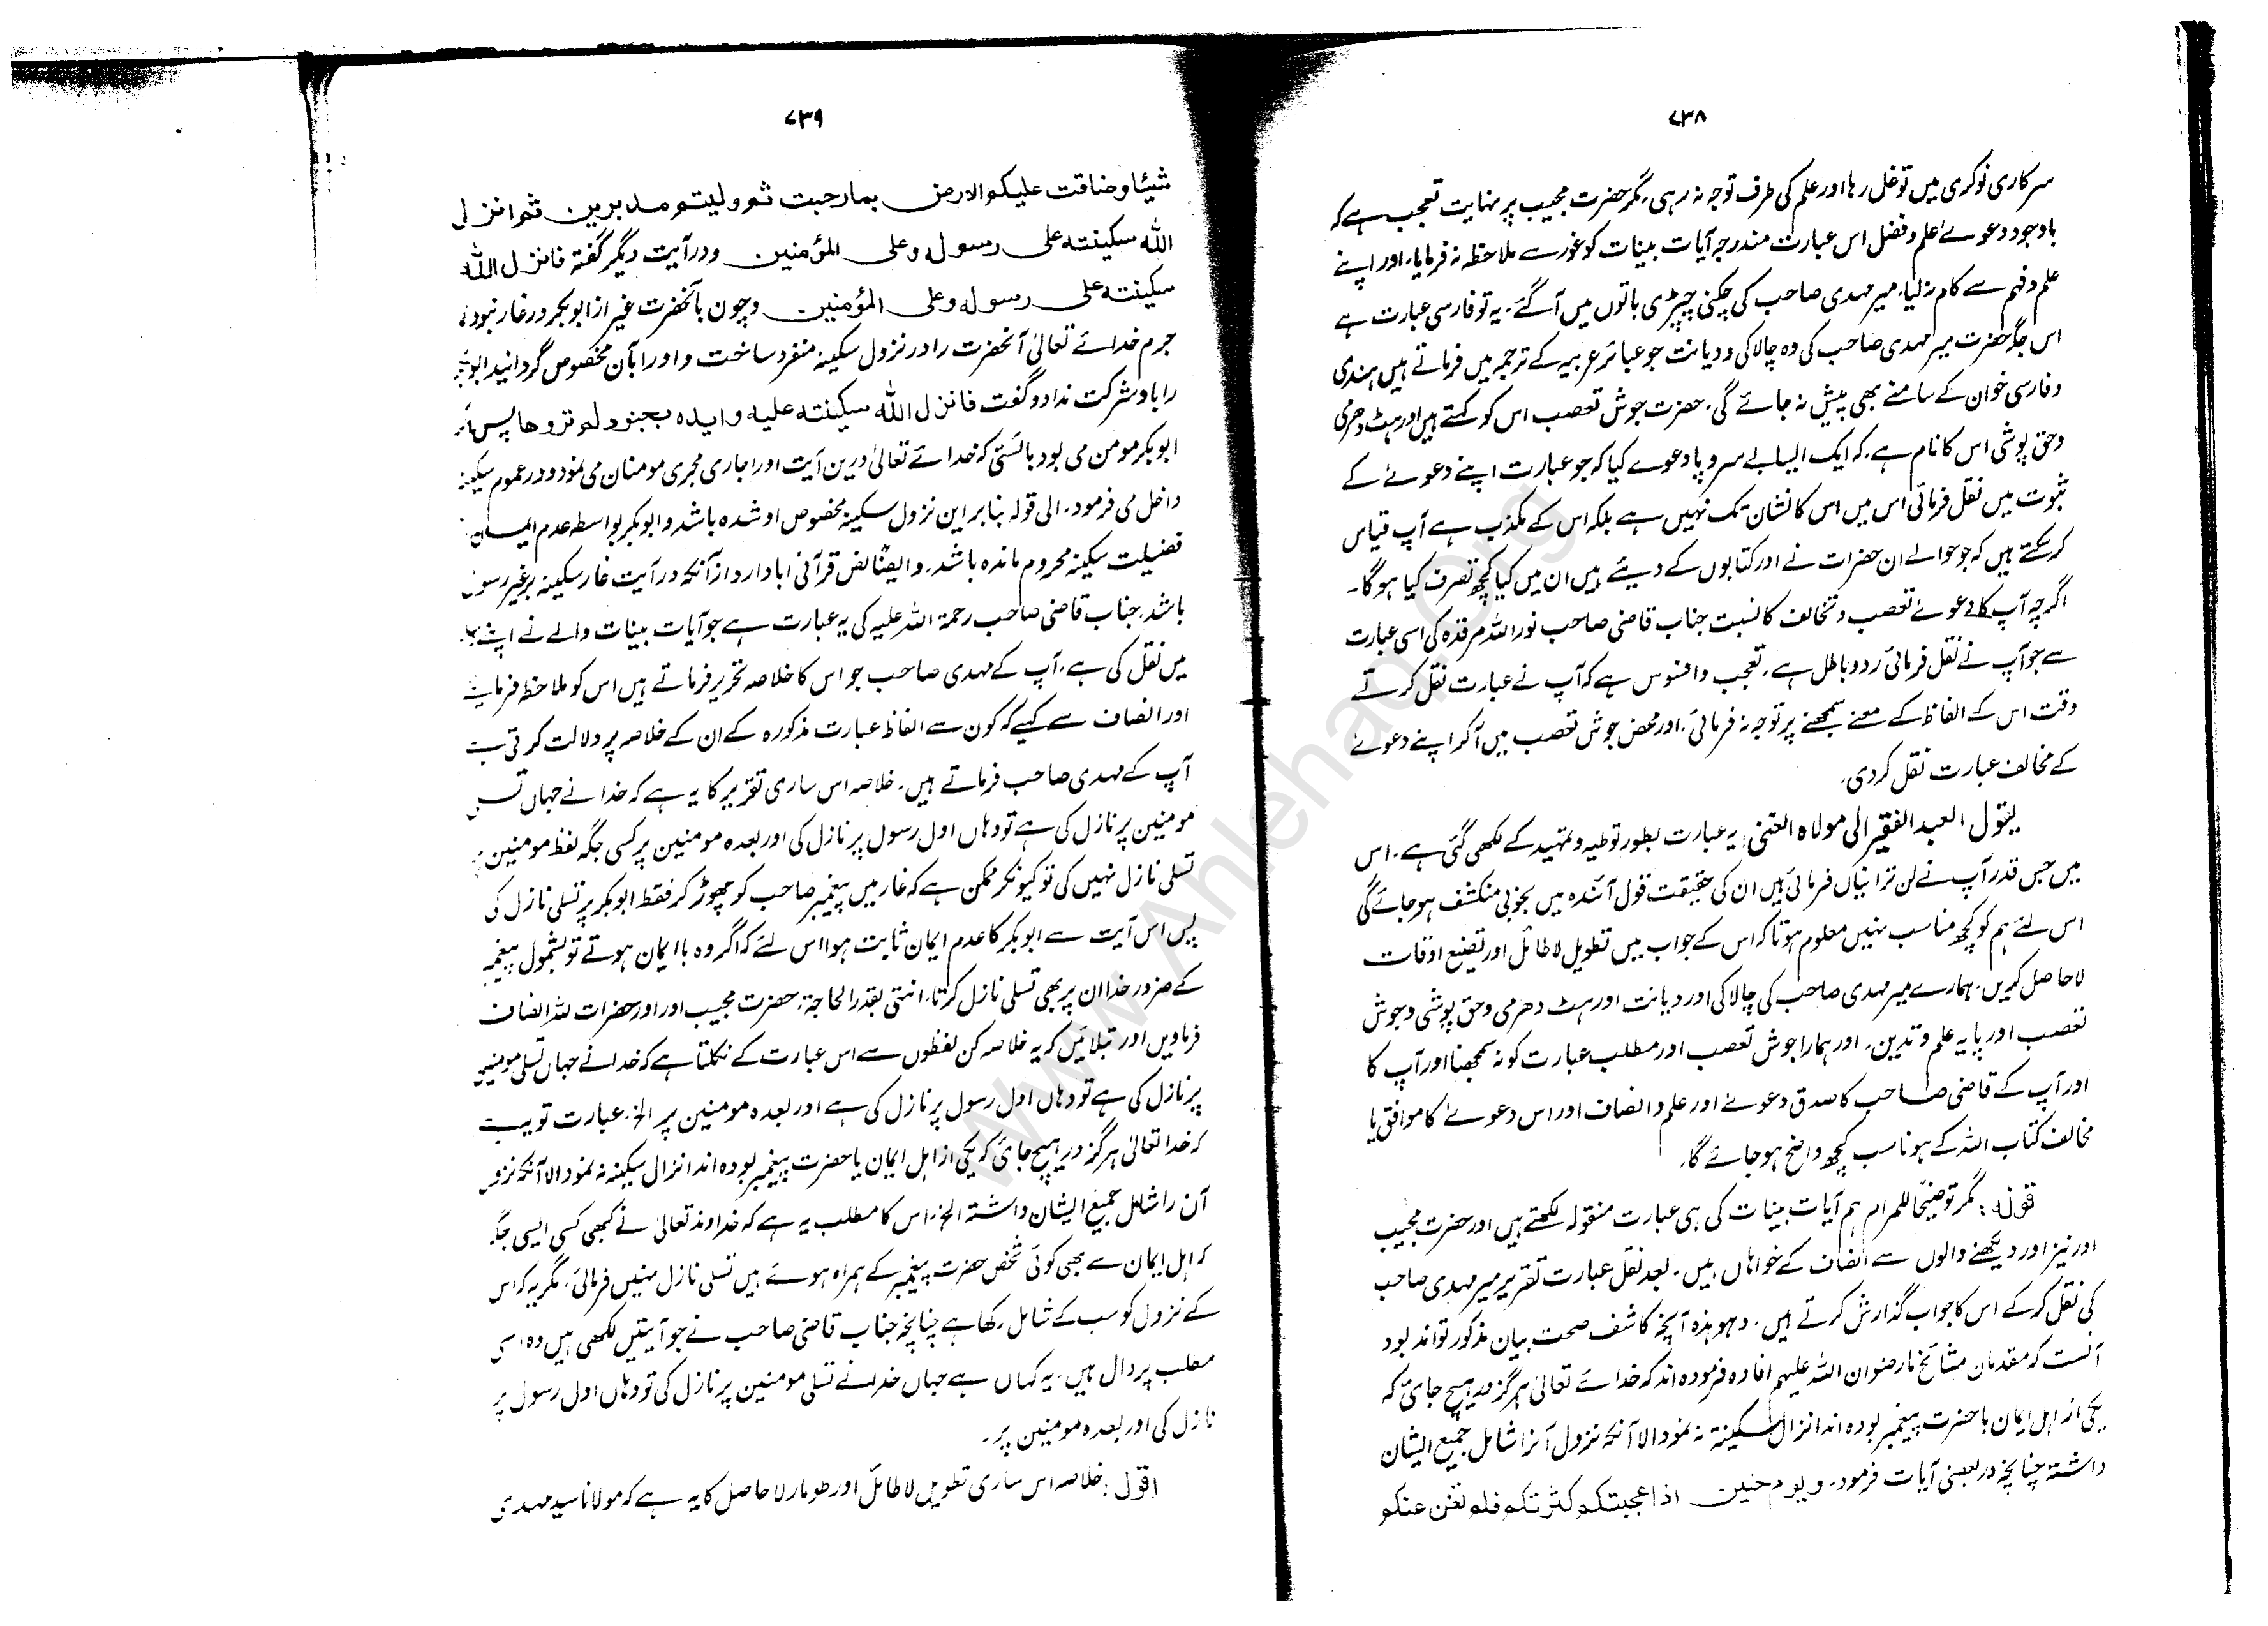 ۷۳۸
سرکاری نوکری میں توغل رہا اور علم کی طرف توجہ نہ رہی، مگر حضرت مجیب پر نہایت تعجب ہے کہ
باوجود دعوےٰ علم و فضل اس عبارت مندرجہ آیات بینات کو غور سے ملاحظہ نہ فرمایا، اور اپنے
علم و فہم سے کام نہ لیا، میر مہدی صاحب کی چکنی چپڑی باتوں میں آگئے، یہ تو فارسی عبارت ہے
اس جگہ حضرت میر مہدی صاحب کی وہ چالاکی و دیانت جو عبائر عربیہ کے ترجمہ میں فرماتے ہیں ہندی
و فارسی خوان کے سامنے بھی پیش نہ جائے گی، حضرت جوش تعصب اس کو کہتے ہیں اور ہٹ دھرمی
و حق پوشی اس کا نام ہے، کہ ایک ایسا بے سروپا دعوے کیا کہ جو عبارت اپنے دعوےٰ کے
ثبوت میں نقل فرمائی اس میں اس کا نشان تک نہیں ہے بلکہ اس کے مکذب ہے آپ قیاس
کرسکتے ہیں کہ جو حوالے ان حضرات نے اور کتابوں کے دیئے ہیں ان میں کیا کچھ تصرف کیا ہوگا۔
اگرچہ آپ کا دعوےٰ تعصب و تخالف کا نسبت جناب قاضی صاحب نور اللہ مرقدہ کی اسی عبارت
سے جو آپ نے نقل فرمائی رد و باطل ہے، تعجب و افسوس ہے کہ آپ نے عبارت نقل کرتے
وقت اس کے الفاظ کے معنے سمجھنے پر توجہ نہ فرمائی، اور محض جوش تعصب میں آکر اپنے دعوےٰ
کے مخالف عبارت نقل کردی۔
یقول العبد الفقیر الی مولاہ الغنی: یہ عبارت بطور توطیہ و تمہید کے لکھی گئی ہے، اس
میں جس قدر آپ نے لن ترانیاں فرمائی ہیں ان کی حقیقت قول آئندہ میں بخوبی منکشف ہوجائے گی
اس لئے ہم کو کچھ مناسب نہیں معلوم ہوتا کہ اس کے جواب میں تطویل لاطائل اور تضیع اوقات
لاحاصل کریں، ہمارے میر مہدی صاحب کی چالاکی اور دیانت اور ہٹ دھرمی و حق پوشی و جوش
تعصب اور پایہ علم و تدین، اور ہمارا جوش تعصب اور مطلب عبارت کو نہ سمجھنا اور آپ کا
اور آپ کے قاضی صاحب کا صدق دعوےٰ اور علم و انصاف اور اس دعوےٰ کا موافق یا
مخالف کتاب اللہ کے ہونا سب کچھ واضح ہوجائے گا۔
قولہ: مگر توضیحًا للمرام ہم آیات بینات کی ہی عبارت منقولہ لکھتے ہیں اور حضرت مجیب
اور نیز اور دیکھنے والوں سے انصاف کے خواہاں ہیں، بعد نقل عبارت تقریر میر مہدی صاحب
کی نقل کرکے اس کا جواب گذارش کرتے ہیں، وہو ہذہ آنچہ کاشف صحت بیان مذکور تواند بود
آنست کہ مقدمان مشائخ ما رضوان اللہ علیہم افادہ فرمودہ اند کہ خدائے تعالیٰ ہرگز در ہیچ جائی کہ
یکی از اہل ایمان با حضرت پیغمبر بودہ اند انزال سکینۃ نہ نمود الا آنکہ نزول آنرا شامل جمیع ایشان
داشتہ چنانچہ در بعضی آیات فرمود، ویوم حنین اذا عجبتکم کثرتکم فلم تغن عنکم
۷۳۹
شیئا وضاقت علیکم الارض بما رحبت ثم ولیتم مدبرین ثم انزل
اللہ سکینتہ علی رسولہ وعلی المؤمنین ودر آیت دیگر گفتہ فانزل اللہ
سکینتہ علی رسولہ وعلی المؤمنین وچون با آنحضرت غیر از ابوبکر در غار نبود
جرم خدائے تعالیٰ آنحضرت را در نزول سکینہ منفرد ساخت و او را بآن مخصوص گردانید
را باو شرکت نداد و گفت فانزل اللہ سکینتہ علیہ وایدہ بجنود لم تروها پس
ابوبکر مومن می بود بالستی کہ خدائے تعالیٰ درین آیت او را جاری مجری مومنان می نمود و در عموم سکینہ
داخل می فرمود، الی قولہ بنابر این نزول سکینہ مخصوص او شدہ باشد و ابوبکر بواسطہ عدم ایمان
فضیلت سکینہ محروم ماندہ باشد، و ایضًا نص قرآنی ابا دارد از آنکہ در آیت غار سکینہ بر غیر رسول
باشد، جناب قاضی صاحب رحمۃ اللہ علیہ کی یہ عبارت ہے جو آیات بینات والے نے اپنے
میں نقل کی ہے، آپ کے مہدی صاحب جو اس کا خلاصہ تحریر فرماتے ہیں اس کو ملاحظہ فرمایئے
اور انصاف سے کہیے کہ کون سے الفاظ عبارت مذکورہ کے ان کے خلاصہ پر دلالت کرتی
آپ کے مہدی صاحب فرماتے ہیں، خلاصہ اس ساری تقریر کا یہ ہے کہ خدا نے جہاں
مومنین پر نازل کی ہے تو وہاں اول رسول پر نازل کی اور بعدہ مومنین پر کسی جگہ لفظ مومنین
تسلی نازل نہیں کی تو کیونکر ممکن ہے کہ غار میں پیغمبر صاحب کو چھوڑ کر فقط ابوبکر پر تسلی نازل کی
پس اس آیت سے ابوبکر کا عدم ایمان ثابت ہوا اس لئے کہ اگر وہ با ایمان ہوتے تو بشمول پیغمبر
کے ضرور خدا ان پر بھی تسلی نازل کرتا، انتہی بقدر الحاجۃ، حضرت مجیب اور اور حضرات للہ انصاف
فرماویں اور بتلائیں کہ یہ خلاصہ کن لفظوں سے اس عبارت کے نکلتا ہے کہ خدا نے جہاں تسلی مومنین
پر نازل کی ہے تو وہاں اول رسول پر نازل کی ہے اور بعدہ مومنین پر الخ، عبارت تو یہ
کہ خدا تعالیٰ ہرگز در ہیچ جائی کہ یکی از اہل ایمان با حضرت پیغمبر بودہ اند انزال سکینہ نہ نمود الا آنکہ نزول
آن را شامل جمیع ایشان داشتہ الخ، اس کا مطلب یہ ہے کہ خداوند تعالیٰ نے کبھی کسی ایسی جگہ
کہ اہل ایمان سے بھی کوئی شخص حضرت پیغمبر کے ہمراہ ہوئے ہیں تسلی نازل نہیں فرمائی، مگر یہ کہ اس
کے نزول کو سب کے شامل رکھا ہے چنانچہ جناب قاضی صاحب نے جو آیتیں لکھی ہیں وہ اسی
مطلب پر دال ہیں، یہ کہاں ہے جہاں خدا نے تسلی مومنین پر نازل کی تو وہاں اول رسول پر
نازل کی اور بعدہ مومنین پر۔
اقول: خلاصہ اس ساری تطویل لاطائل اور طومار لاحاصل کا یہ ہے کہ مولانا سید مہدی
www.Ahlehaq.Org